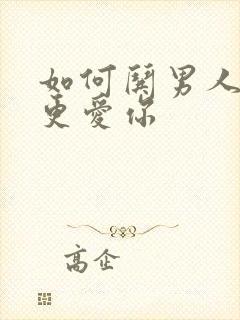 如何男人
更愛你
高企